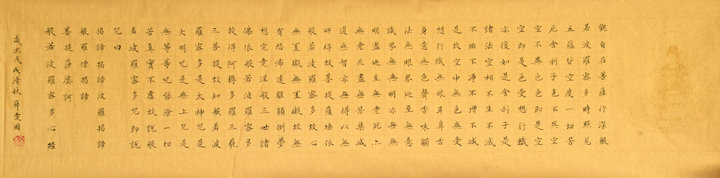 觀自在菩薩行深般
若波羅蜜多時照見
五蘊皆空度一切苦
厄舍利子色不異空
空不異色色即是空
空即是色受想行識
亦復如是舍利子是
諸法空相不生不滅
不垢不淨不增不減
是故空中無色無受
想行識無眼耳鼻舌
身意無色聲香味觸
法無眼界乃至無意
識界無無明亦無無
明盡乃至無老死亦
無老死盡無苦集滅
道無智亦無得以無
所得故菩提薩埵依
般若波羅蜜多故心
無罣礙無罣礙故無
有恐怖遠離顛倒夢
想究竟涅槃三世諸
佛依般若波羅蜜多
故得阿耨多羅三藐
三菩提故知般若波
羅蜜多是大神咒是
大明咒是無上咒是
無等等咒能除一切
苦真實不虛故說般
若波羅蜜多咒即說
咒曰
揭諦揭諦波羅揭諦
般羅僧揭諦
菩提莎婆訶
般若波羅蜜多心經
歲次戊戌清秋